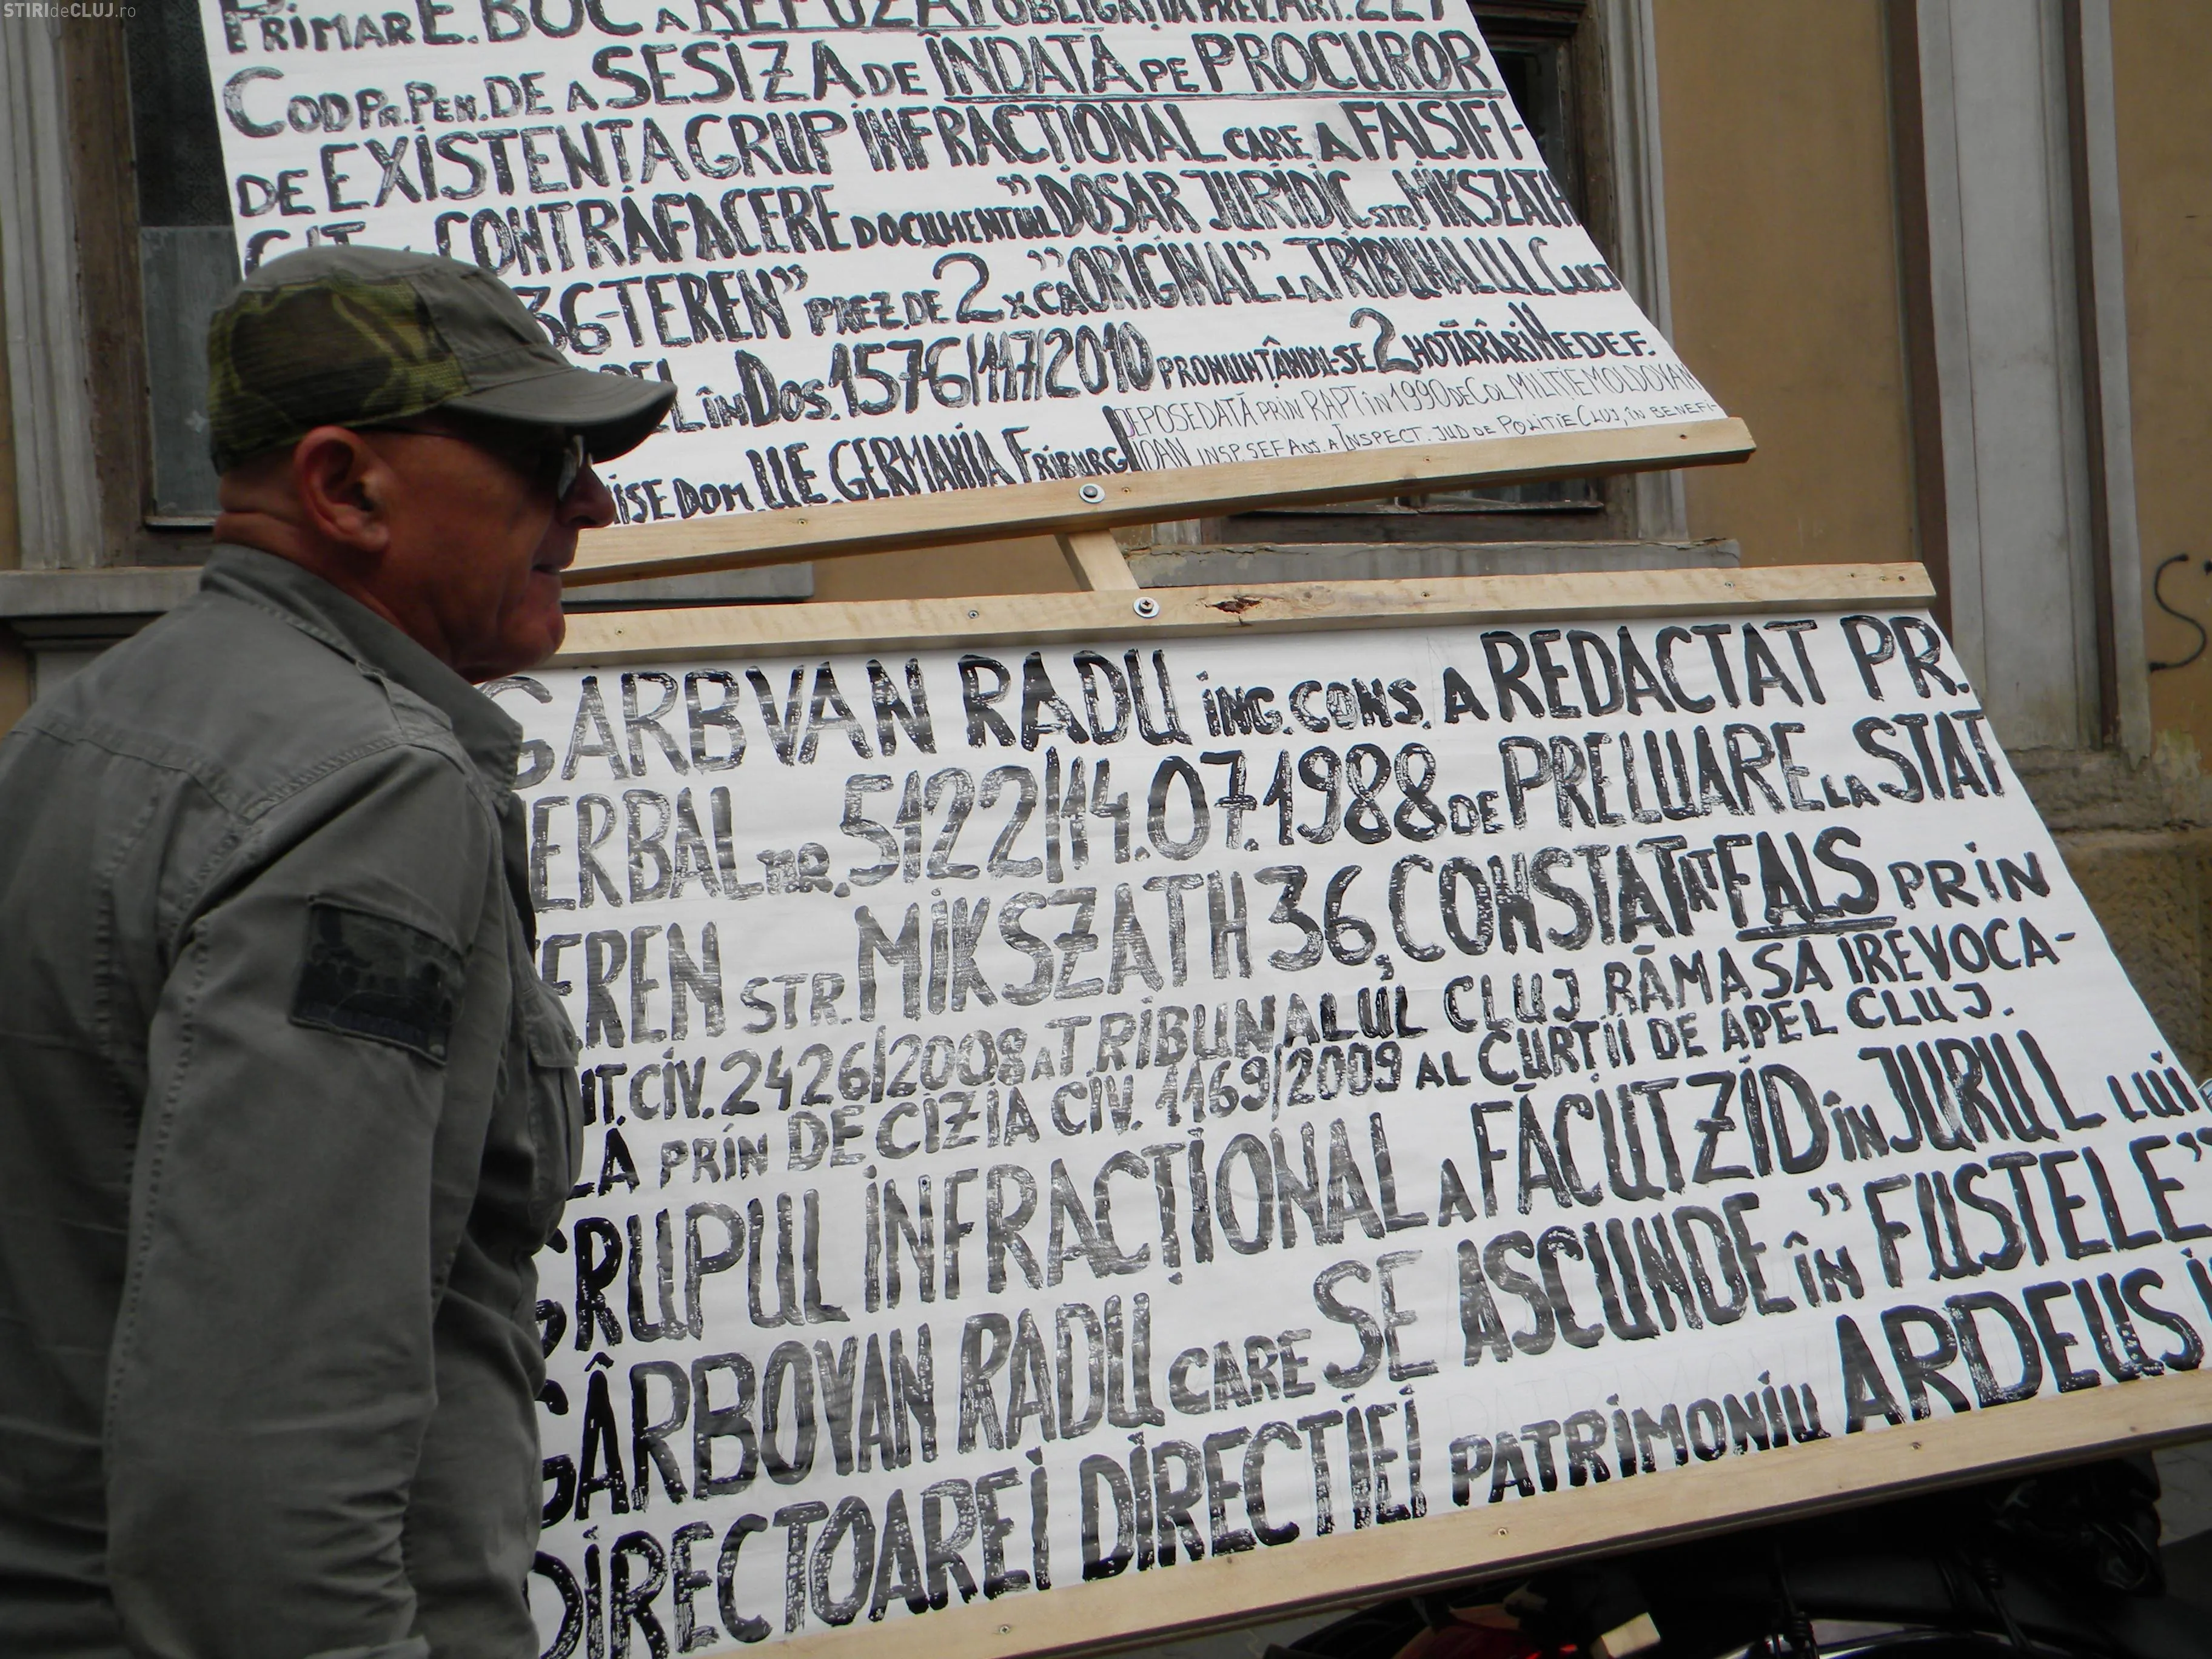 STIRIdeCLUJ.ro
PRIMAR E. BOC A REFUZAT OBLIGAȚIA PREV. ART. 227
COD PR. PEN. DE A SESIZA DE ÎNDATĂ PE PROCUROR
DE EXISTENȚA GRUP INFRACȚIONAL CARE A FALSIFI-
CONTRAFACERE DOCUMENTUL "DOSAR JURIDIC STR MIKSZATH
36-TEREN" PREZ. DE 2 X CA "ORIGINAL" LA TRIBUNALUL CLUJ
ÎN DOS. 1576/117/2010 PRONUNȚÂNDU-SE 2 HOTĂRÂRI NEDEF.
DOM. ILIE GERMANIA FRIBURG
DEPOSEDATĂ PRIN RAPT ÎN 1990 DE COL MILIȚIE MOLDOVAN
IOAN INSP. SEF ADJ. A INSPECT. JUD DE POLITIE CLUJ, ÎN BENEFI-
GARBVAN RADU ING. CONS. A REDACTAT PR.
ERBAL NR. 5122/14.07.1988 DE PRELUARE LA STAT
EREN STR. MIKSZATH 36, CONSTATAT FALS PRIN
NT. CIV. 2426/2008 A TRIBUNALUL CLUJ RĂMASA IREVOCA-
LĂ PRIN DECIZIA CIV. 1169/2009 AL CURȚII DE APEL CLUJ.
GRUPUL INFRACȚIONAL A FĂCUT ZID ÎN JURUL LUI
GÂRBOVAN RADU CARE SE ASCUNDE ÎN "FUSTELE"
DIRECTOAREI DIRECTIEI PATRIMONIU ARDEUS